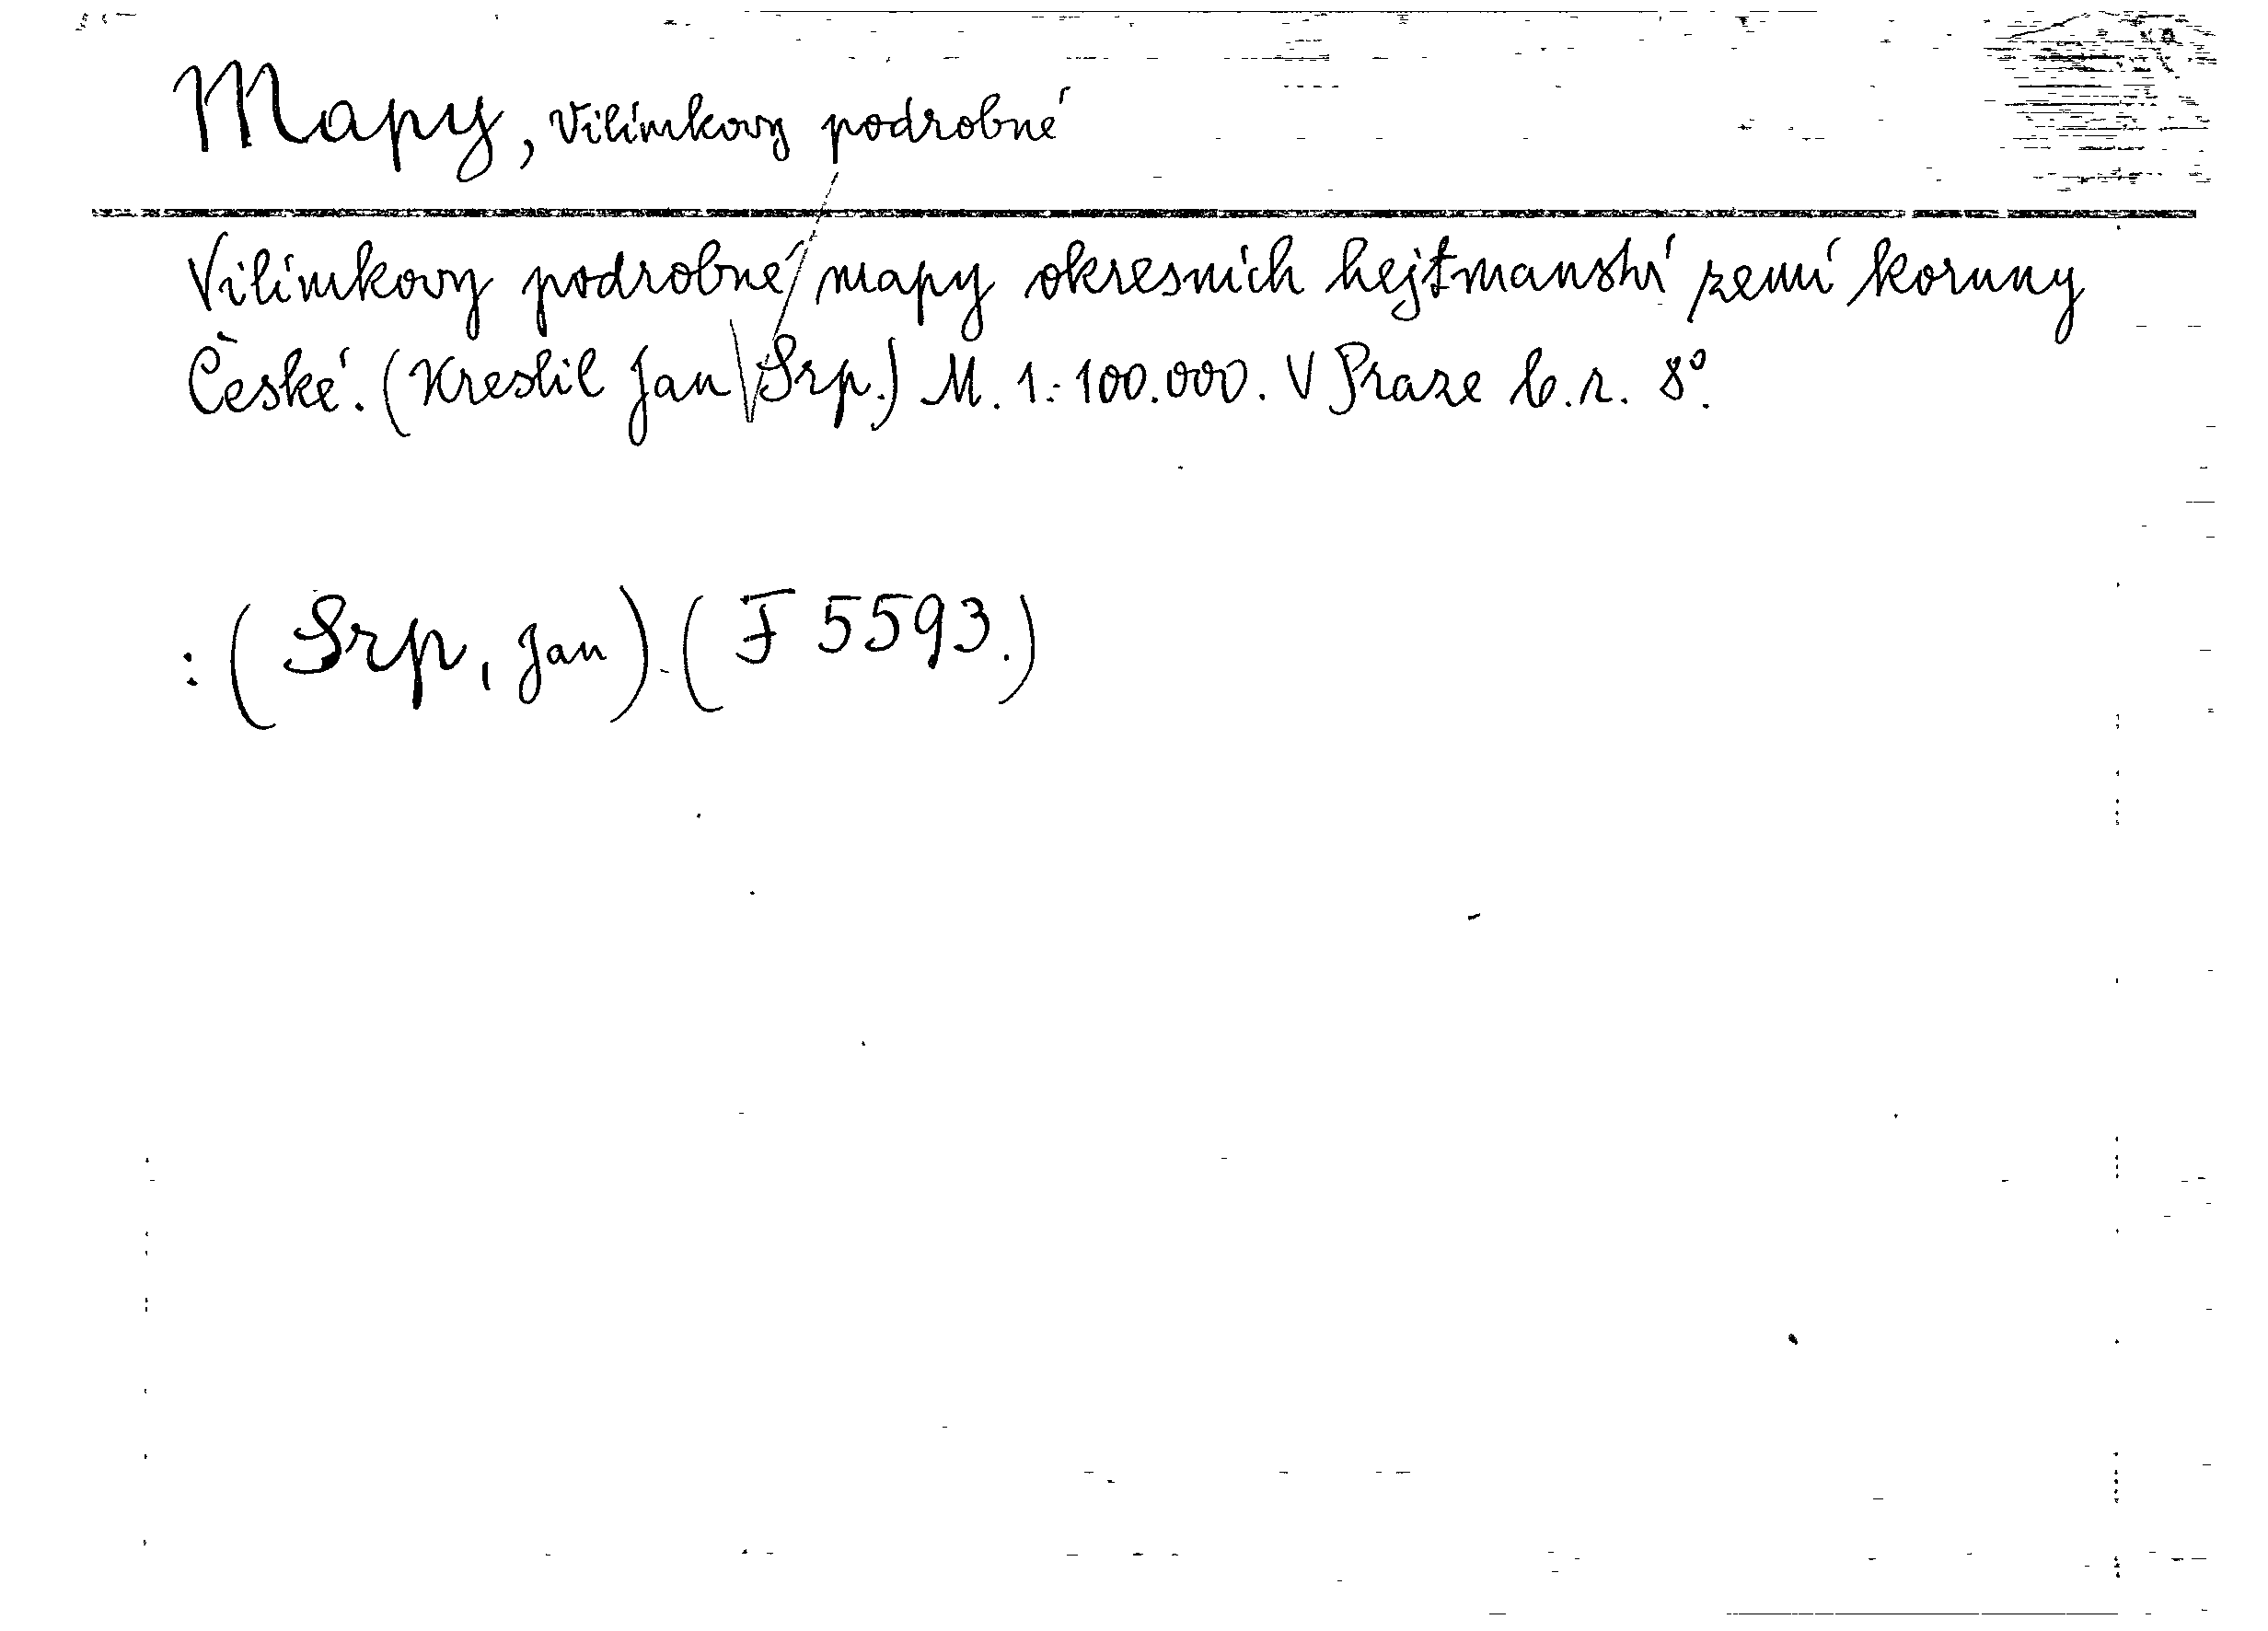 Mapy, Vilímkovy podrobné
Vilímkovy podrobné mapy okresních hejtmanství zemí koruny
České. (Kreslil Jan Srp.) M. 1:100.000. V Praze b.r. 8°.
: (Srp, Jan). (F 5593.)